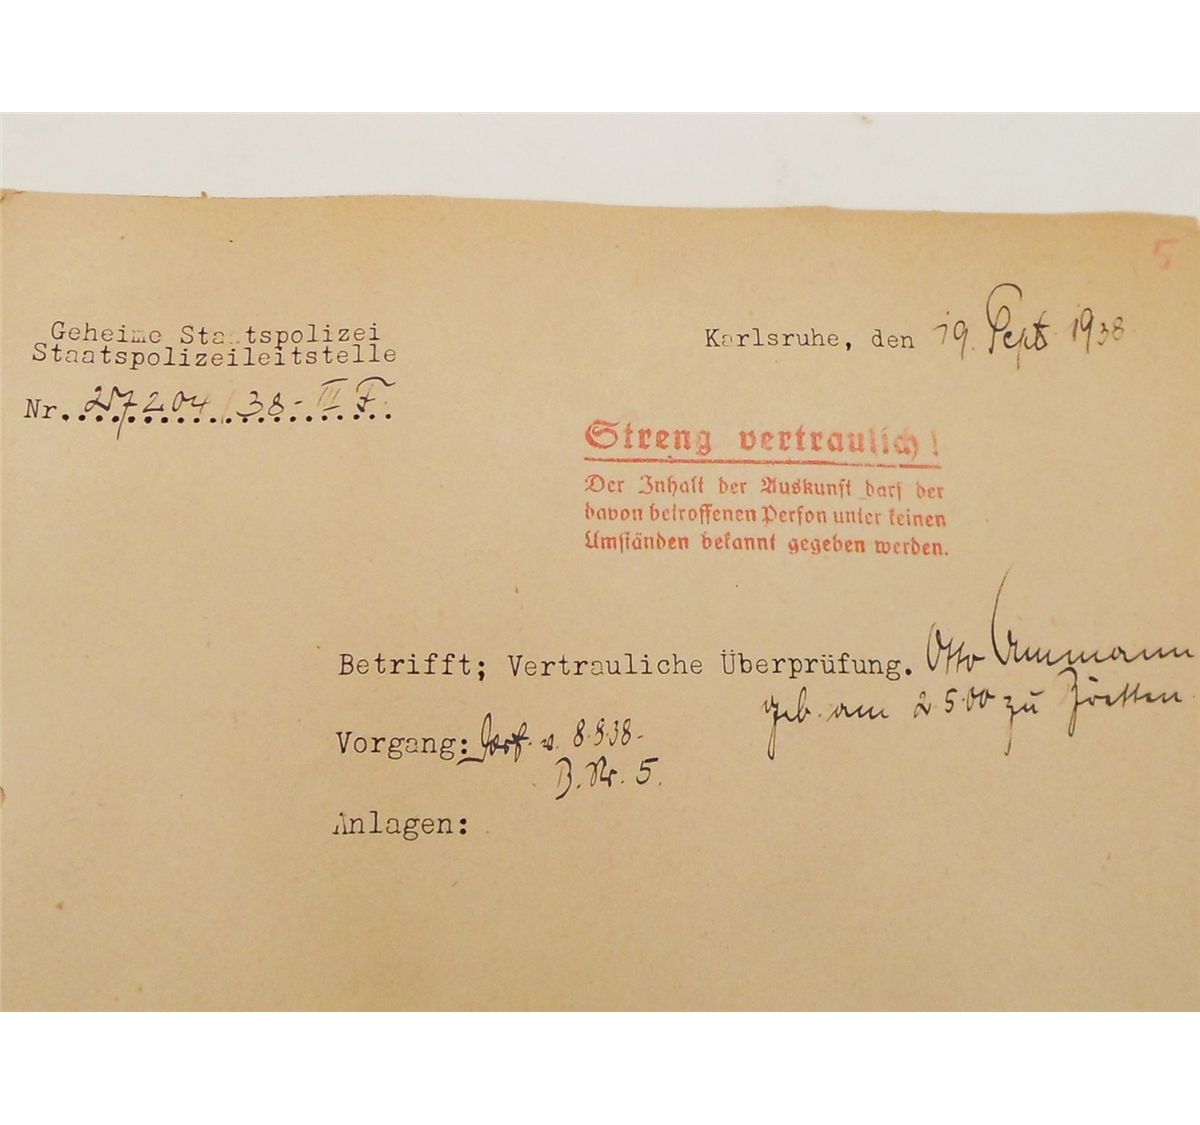 5
Geheime Staatspolizei
Staatspolizeileitstelle
Karlsruhe, den 19. Sept 1938
Nr. 27204/38- III F.
Streng vertraulich!
Der Inhalt der Auskunft darf der
davon betroffenen Person unter keinen
Umständen bekannt gegeben werden.
Betrifft; Vertrauliche Überprüfung. Otto Ammann
geb. am 2 5 00 zu Bretten
Vorgang: v. 8.9.38-
B. Nr. 5.
Anlagen: